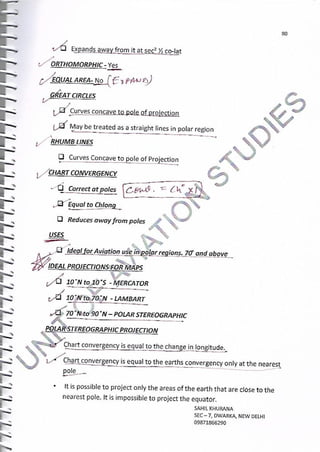 80
Expands away from it at sec² ½ co-lat
ORTHOMORPHIC - Yes
EQUAL AREA- No (EXPAND)
GREAT CIRCLES
Curves concave to pole of projection
May be treated as a straight lines in polar region
RHUMB LINES
Curves Concave to pole of Projection
CHART CONVERGENCY
Correct at poles
Equal to Chlong
Reduces away from poles
USES
Ideal for Aviation use in polar regions. 70° and above
IDEAL PROJECTIONS FOR MAPS
10°N to 10°S - MERCATOR
10°N to 70°N - LAMBART
70°N to 90°N – POLAR STEREOGRAPHIC
POLAR STEREOGRAPHIC PROJECTION
Chart convergency is equal to the change in longitude.
Chart convergency is equal to the earths convergency only at the nearest
pole
• It is possible to project only the areas of the earth that are close to the
nearest pole. It is impossible to project the equator.
SAHIL KHURANA
SEC – 7, DWARKA, NEW DELHI
09871866290
UNIT OF AVIATION STUDIES